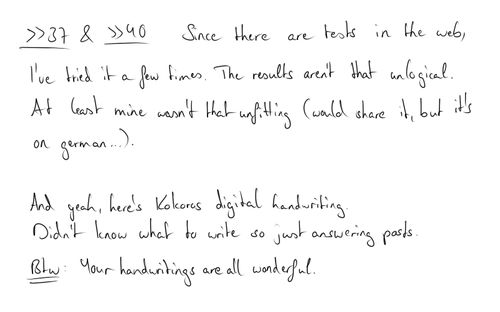 >>37 & >>40 Since there are tests in the web,
I've tried it a few times. The results aren't that unlogical.
At least mine wasn't that unfitting (would share it, but it's
on german...).
And yeah, here's Kokoros digital handwriting.
Didn't know what to write so just answering posts.
Btw: Your handwritings are all wonderful.